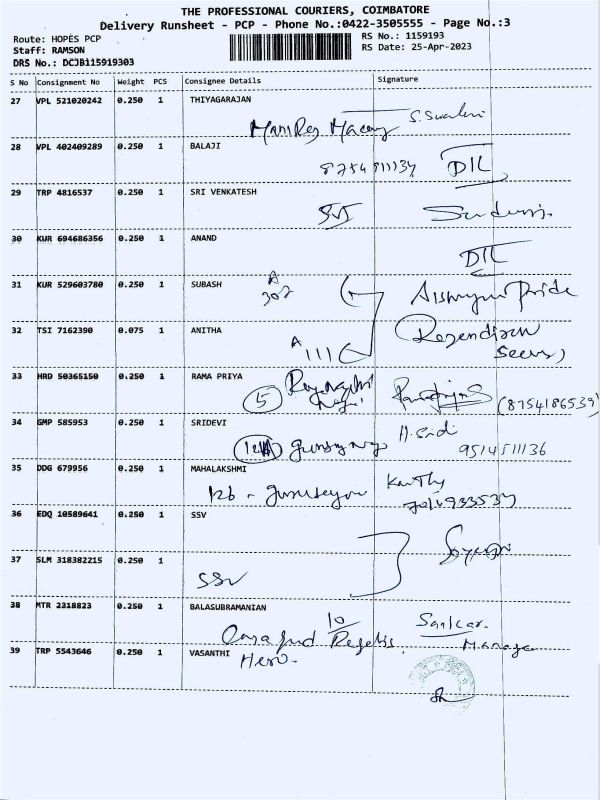 THE PROFESSIONAL COURIERS, COIMBATORE
Delivery Runsheet - PCP - Phone No.:0422-3505555 - Page No.:3
Route: HOPES PCP
Staff: RAMSON
DRS No.: DCJB115919303
RS No.: 1159193
RS Date: 25-Apr-2023
S No Consignment No Weight PCS Consignee Details Signature
27 VPL 521020242 0.250 1 THIYAGARAJAN
28 VPL 402409289 0.250 1 BALAJI
8754911134 DIL
29 TRP 4816537 0.250 1 SRI VENKATESH
SVS
30 KUR 694686356 0.250 1 ANAND
DIL
31 KUR 529603780 0.250 1 SUBASH
A 302
Pride
32 TSI 7162390 0.075 1 ANITHA
A 111
33 HRD 50365150 0.250 1 RAMA PRIYA
5
(8754186539)
34 GMP 585953 0.250 1 SRIDEVI
9514511136
35 DDG 679956 0.250 1 MAHALAKSHMI
126 -
36 EDQ 10589641 0.250 1 SSV
37 SLM 318382215 0.250 1
SSV
38 MTR 2318823 0.250 1 BALASUBRAMANIAN
10
Sankar.
Manager
39 TRP 5543646 0.250 1 VASANTHI
Hero.